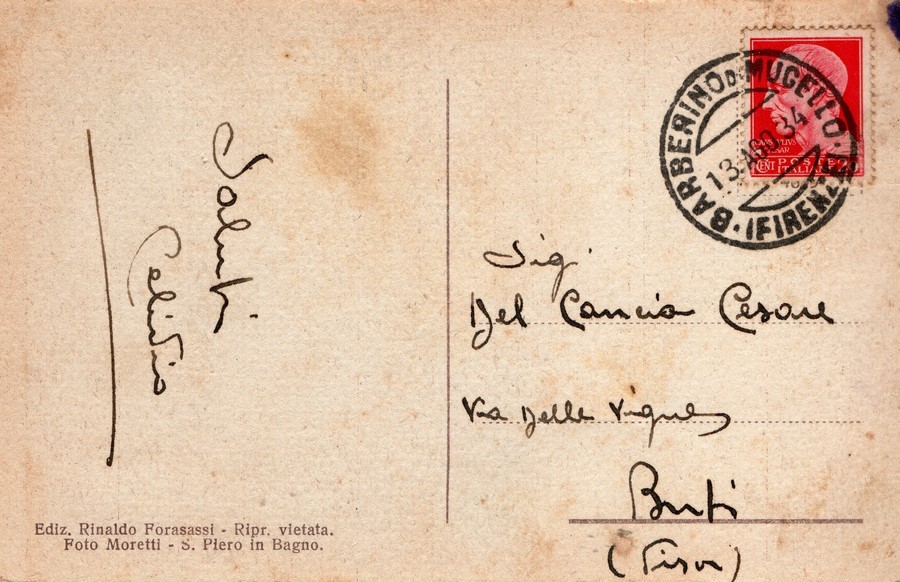 Saluti
Celidio
Ediz. Rinaldo Forasassi - Ripr. vietata.
Foto Moretti - S. Piero in Bagno.
BARBERINO DI MUGELLO
13 AGO 34
(FIRENZE)
POSTE
ITALIANE
CENT 20
Sig.
Del Cancia Cesare
Via Delle Vigne
Buti
(Pisa)